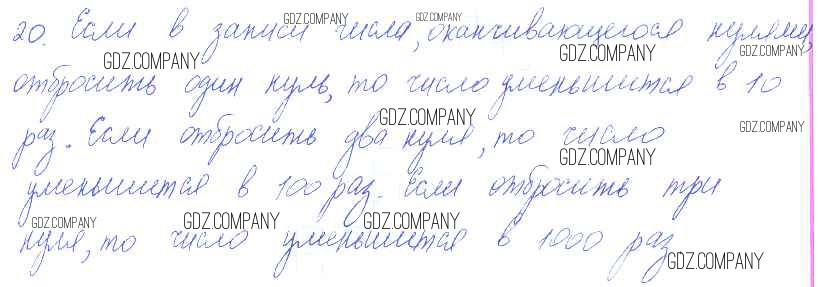 20. Если в записи числа, оканчивающегося нулями,
отбросить один нуль, то число уменьшится в 10
раз. Если отбросить два нуля, то число
уменьшится в 100 раз. Если отбросить три
нуля, то число уменьшится в 1000 раз
GDZ.COMPANY
GDZ.COMPANY
GDZ.COMPANY
GDZ.COMPANY
GDZ.COMPANY
GDZ.COMPANY
GDZ.COMPANY
GDZ.COMPANY
GDZ.COMPANY
GDZ.COMPANY
GDZ.COMPANY
GDZ.COMPANY